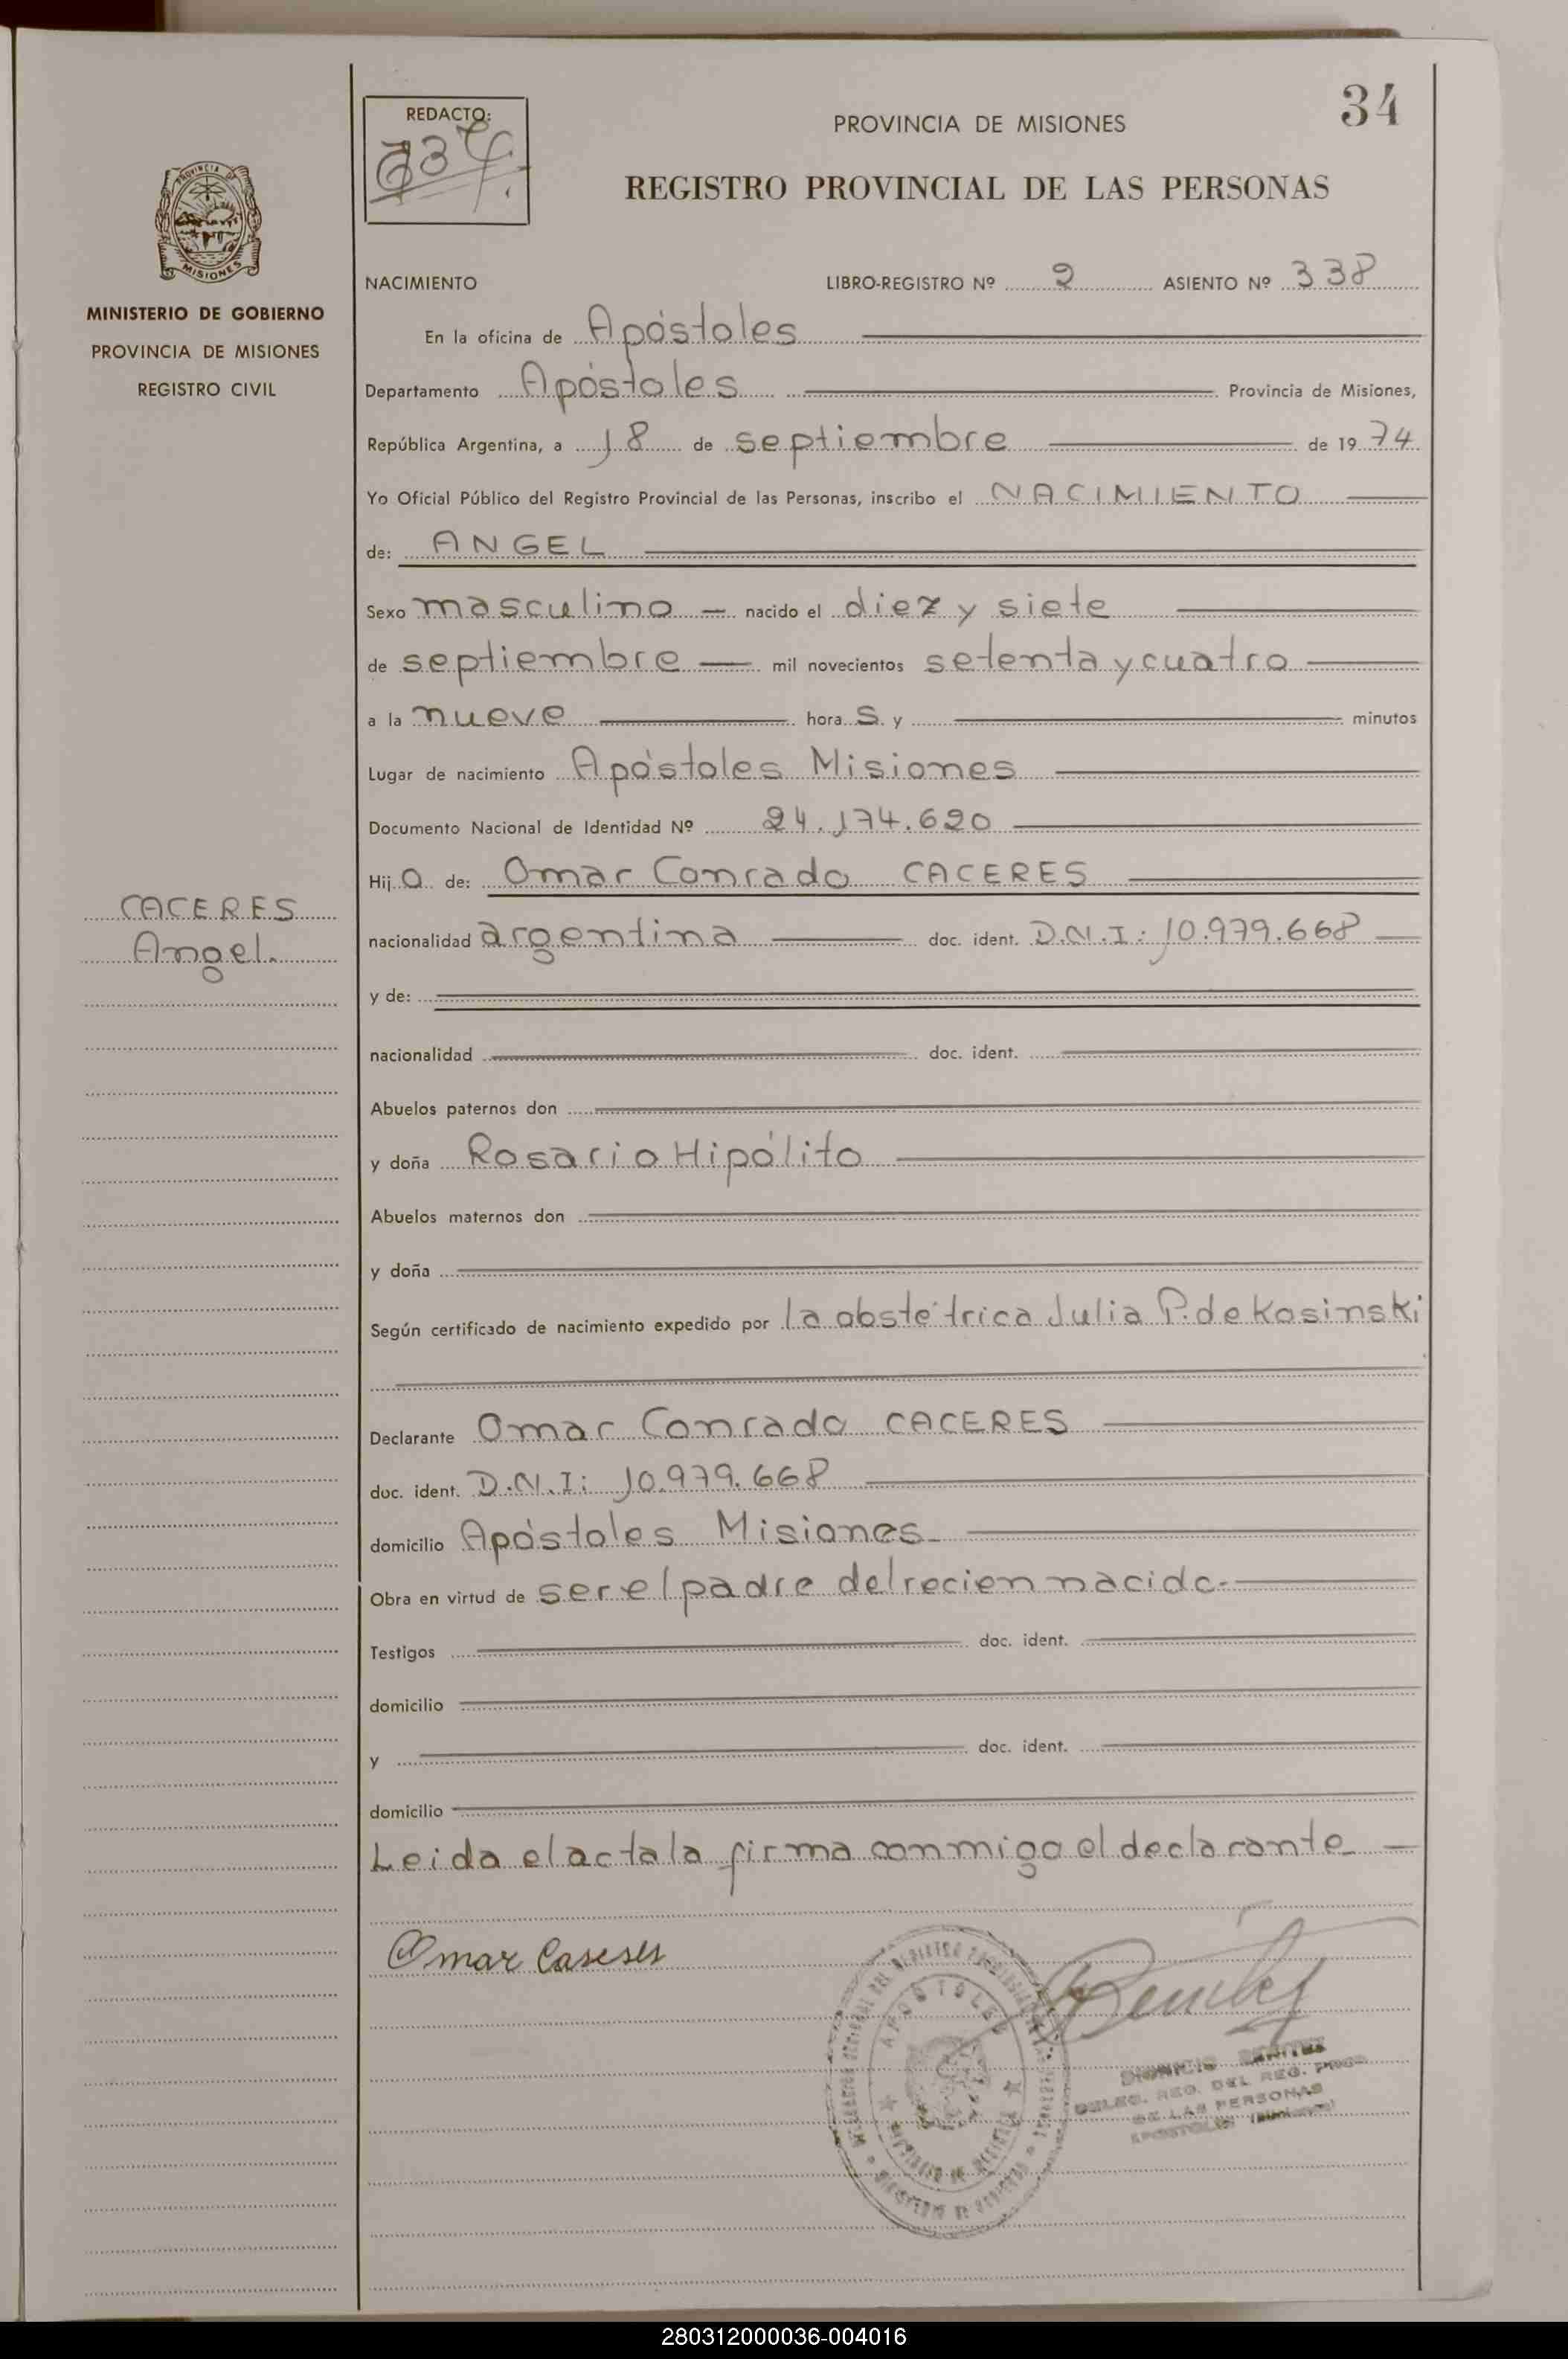 34
REDACTO:
PROVINCIA DE MISIONES
REGISTRO PROVINCIAL DE LAS PERSONAS
PROVINCIA DE
MISIONES
MINISTERIO DE GOBIERNO
PROVINCIA DE MISIONES
REGISTRO CIVIL
NACIMIENTO LIBRO-REGISTRO Nº 2 ASIENTO Nº 338
En la oficina de Apóstoles
Departamento Apóstoles Provincia de Misiones,
República Argentina, a 18 de septiembre de 1974
Yo Oficial Público del Registro Provincial de las Personas, inscribo el NACIMIENTO
de: ANGEL
Sexo masculino — nacido el diez y siete
de septiembre — mil novecientos setenta y cuatro
a la nueve hora s y minutos
Lugar de nacimiento Apóstoles Misiones
Documento Nacional de Identidad Nº 24.174.620
Hijo de: Omar Conrado CACERES
CACERES
Angel.
nacionalidad argentina doc. ident. D.N.I: 10.979.668
y de:
nacionalidad doc. ident.
Abuelos paternos don
y doña Rosario Hipólito
Abuelos maternos don
y doña
Según certificado de nacimiento expedido por la obstétrica Julia P. de Kosinski
Declarante Omar Conrado CACERES
doc. ident. D.N.I: 10.979.668
domicilio Apóstoles Misiones
Obra en virtud de ser el padre del recien nacido.
Testigos doc. ident.
domicilio
y doc. ident.
domicilio
Leida el acta la firma conmigo el declarante
Omar Caseses
APOSTOLES
DIONICIO BENITEZ
DELEG. REG. DEL REG. PROV.
DE LAS PERSONAS
APOSTOLES (Misiones)
280312000036-004016